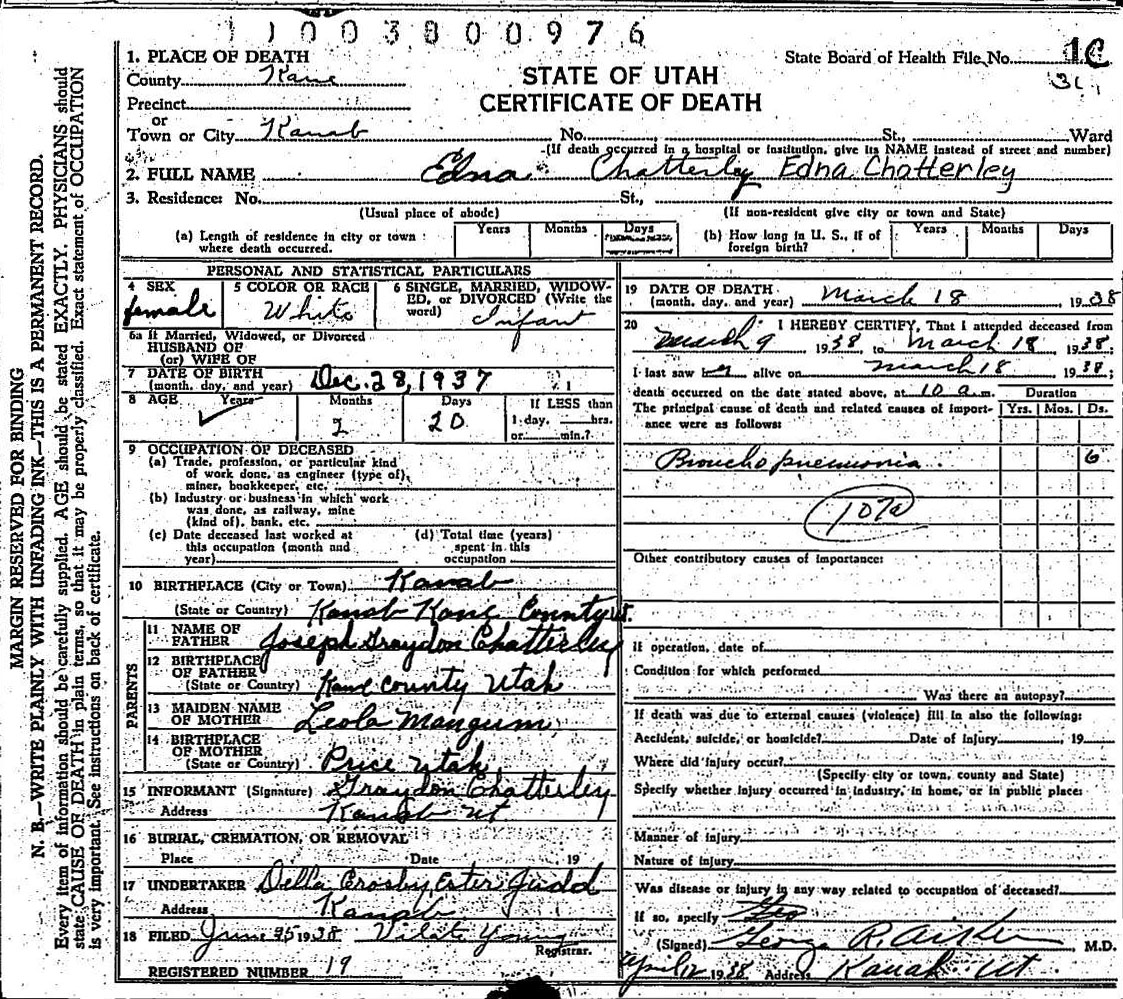 1 1 0 0 3 8 0 0 9 7 6
1. PLACE OF DEATH
County Kane
Precinct
or
Town or City Kanab No. St., Ward
(If death occurred in a hospital or institution, give its NAME instead of street and number)
State Board of Health File No. 10
31
STATE OF UTAH
CERTIFICATE OF DEATH
2. FULL NAME Edna Chatterley Edna Chatterley
3. Residence: No. St.,
(Usual place of abode) (If non-resident give city or town and State)
(a) Length of residence in city or town where death occurred. Years Months Days
(b) How long in U. S., if of foreign birth? Years Months Days
PERSONAL AND STATISTICAL PARTICULARS
4 SEX female
5 COLOR OR RACE White
6 SINGLE, MARRIED, WIDOWED, or DIVORCED (Write the word) Infant
6a If Married, Widowed, or Divorced
HUSBAND OF
(or) WIFE OF
7 DATE OF BIRTH
(month, day, and year) Dec. 28, 1937
8 AGE Years Months Days If LESS than
2 20 1 day, hrs.
or min.?
9 OCCUPATION OF DECEASED
(a) Trade, profession, or particular kind
of work done, as engineer (type of),
miner, bookkeeper, etc.
(b) Industry or business in which work
was done, as railway, mine
(kind of), bank, etc.
(c) Date deceased last worked at
this occupation (month and
year)
(d) Total time (years)
spent in this
occupation
10 BIRTHPLACE (City or Town) Kanab
(State or Country) Kanab Kane County Ut.
PARENTS
11 NAME OF
FATHER Joseph Graydon Chatterley
12 BIRTHPLACE
OF FATHER
(State or Country) Kane County Utah
13 MAIDEN NAME
OF MOTHER Leola Mangum
14 BIRTHPLACE
OF MOTHER
(State or Country) Price Utah
15 INFORMANT (Signature) Graydon Chatterley
Address Kanab Ut
16 BURIAL, CREMATION, OR REMOVAL
Place Date 19
17 UNDERTAKER Della Crosby, Ester Judd
Address Kanab
18 FILED June 25 1938 Vilate Young
Registrar.
REGISTERED NUMBER 19
19 DATE OF DEATH
(month, day, and year) March 18 1938
20 I HEREBY CERTIFY, That I attended deceased from
March 9 1938 to March 18 1938;
I last saw her alive on March 18 1938;
death occurred on the date stated above, at 10 a.m. Duration
The principal cause of death and related causes of importance were as follows: Yrs. Mos. Ds.
Broncho pneumonia 6
107a
Other contributory causes of importance:
If operation, date of
Condition for which performed
Was there an autopsy?
If death was due to external causes (violence) fill in also the following:
Accident, suicide, or homicide? Date of Injury 19
Where did injury occur?
(Specify city or town, county and State)
Specify whether injury occurred in industry, in home, or in public place:
Manner of injury
Nature of injury
Was disease or injury in any way related to occupation of deceased?
If so, specify Geo
(Signed) George R. Aiken M.D.
April 12 1938 Address Kanab Ut
MARGIN RESERVED FOR BINDING
N. B.—WRITE PLAINLY WITH UNFADING INK—THIS IS A PERMANENT RECORD.
Every item of information should be carefully supplied. AGE should be stated EXACTLY. PHYSICIANS should
state CAUSE OF DEATH in plain terms, so that it may be properly classified. Exact statement of OCCUPATION
is very important. See instructions on back of certificate.